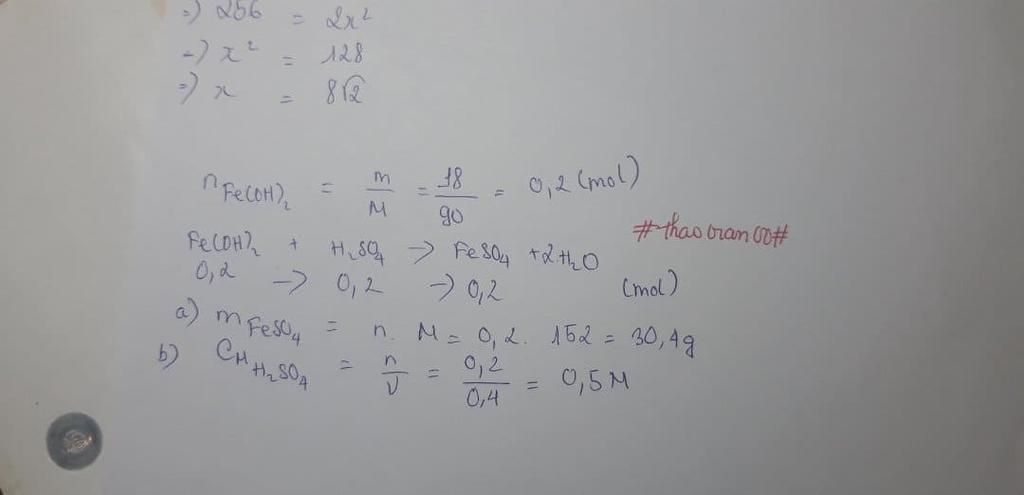 => 256 = 2x²
=> x² = 128
=> x = 8√2
n Fe(OH)₂ = m/M = 18/90 = 0,2 (mol)
#thaotran00#
Fe(OH)₂ + H₂SO₄ -> FeSO₄ + 2H₂O
0,2 -> 0,2 -> 0,2 (mol)
a) m FeSO₄ = n. M = 0,2. 152 = 30,4g
b) CM H₂SO₄ = n/V = 0,2/0,4 = 0,5M